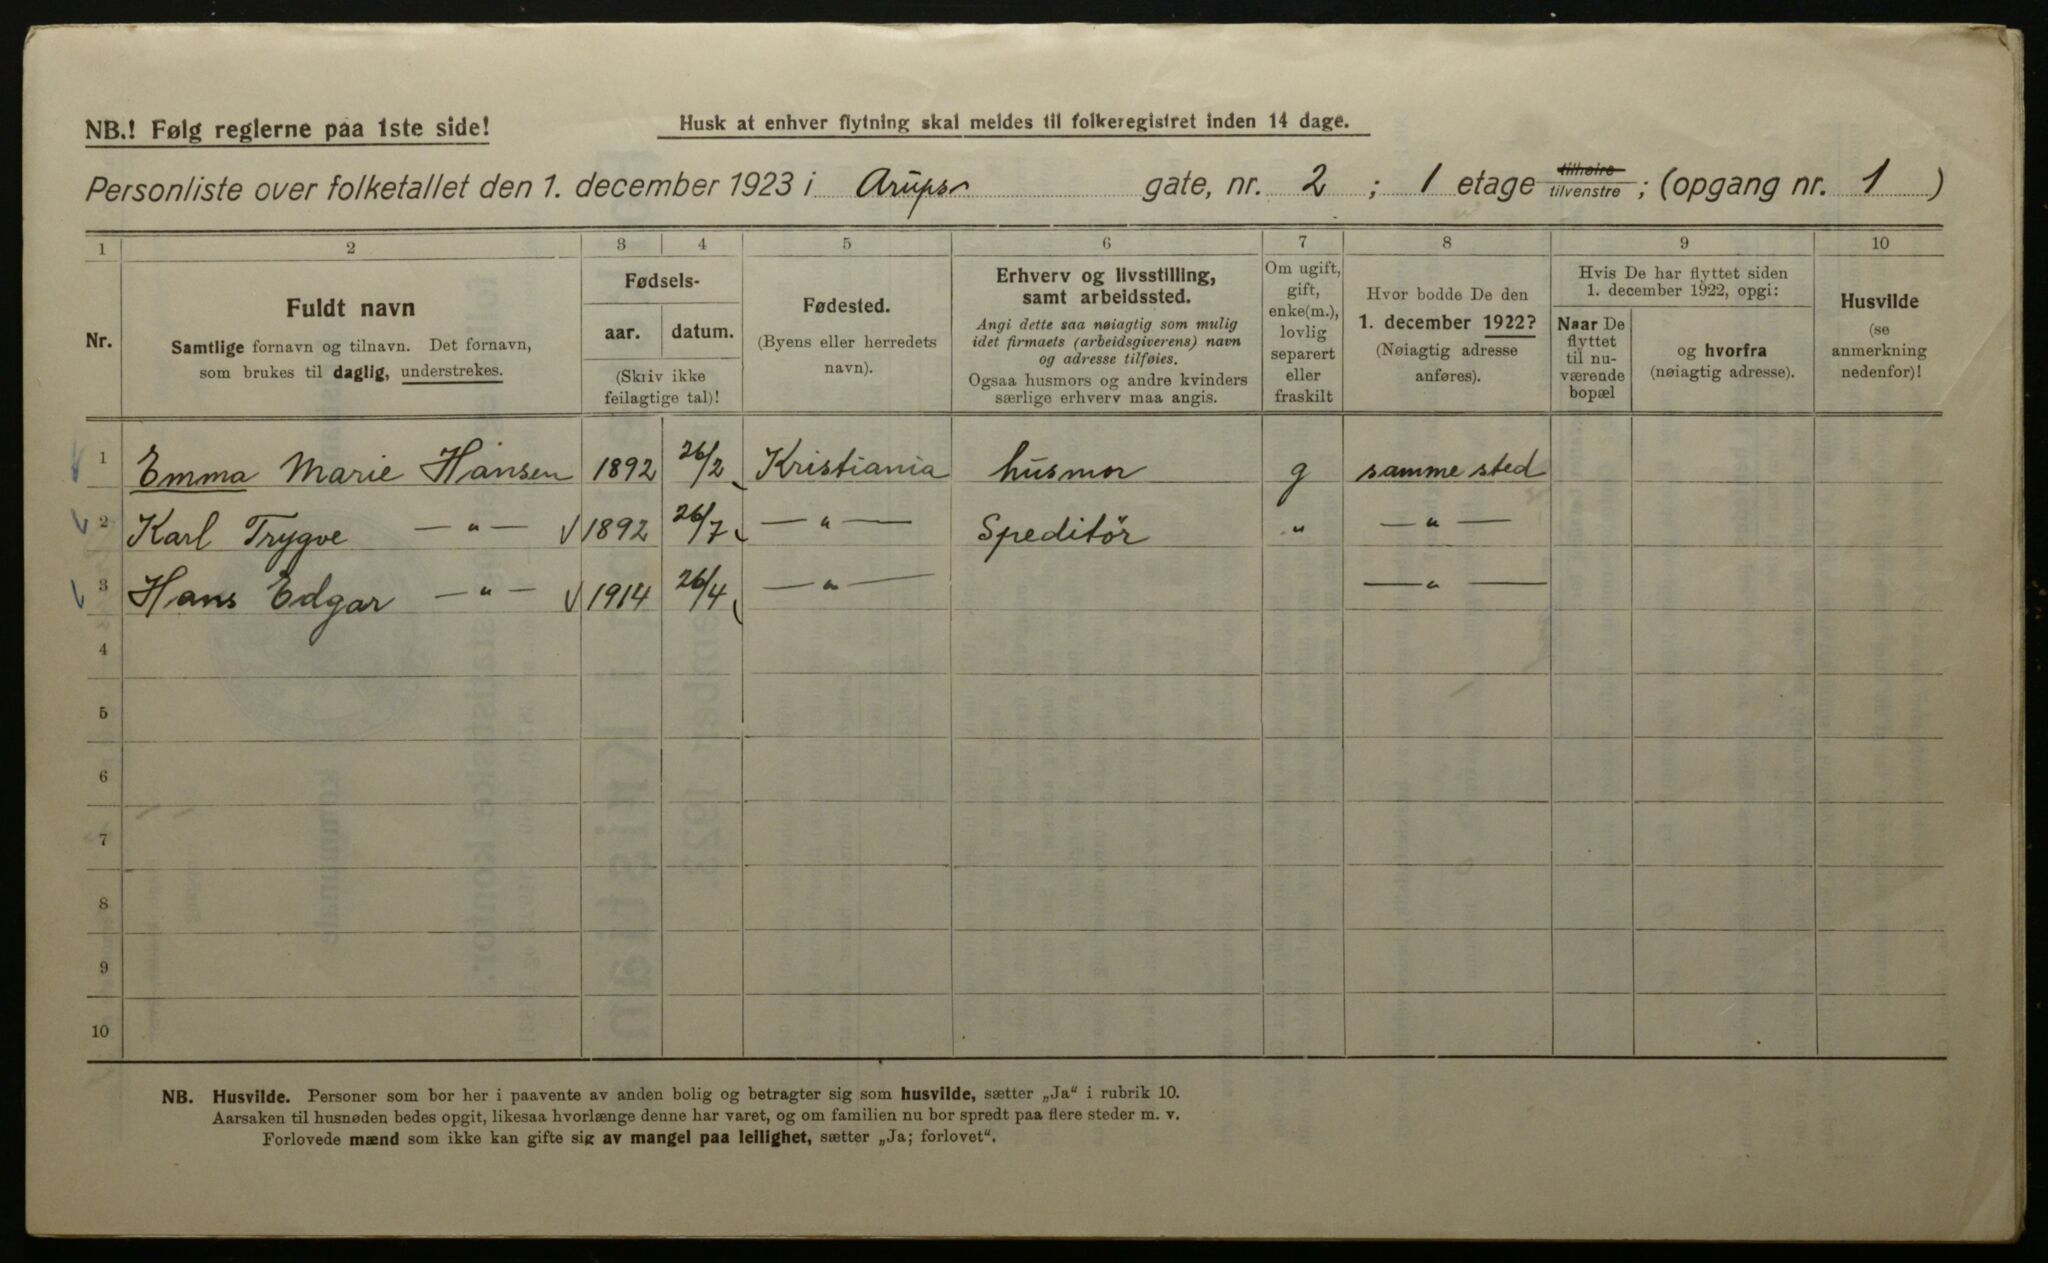 NB.! Følg reglerne paa 1ste side!
Husk at enhver flytning skal meldes til folkeregistret inden 14 dage.
Personliste over folketallet den 1. december 1923 i Arups gate, nr. 2 ; 1 etage tilhøire tilvenstre ; (opgang nr. 1 )
1 2 3 4 5 6 7 8 9 10
Nr.
Fuldt navn
Samtlige fornavn og tilnavn. Det fornavn,
som brukes til daglig, understrekes.
Fødsels-
aar. datum.
(Skriv ikke
feilagtige tal)!
Fødested.
(Byens eller herredets
navn).
Erhverv og livsstilling,
samt arbeidssted.
Angi dette saa nøiagtig som mulig
idet firmaets (arbeidsgiverens) navn
og adresse tilføies.
Ogsaa husmors og andre kvinders
særlige erhverv maa angis.
Om ugift,
gift,
enke(m.),
lovlig
separert
eller
fraskilt
Hvor bodde De den
1. december 1922?
(Nøiagtig adresse
anføres).
Hvis De har flyttet siden
1. december 1922, opgi:
Naar De
flyttet
til nu-
værende
bopæl
og hvorfra
(nøiagtig adresse).
Husvilde
(se
anmerkning
nedenfor)!
1 Emma Marie Hansen 1892 26/2 Kristiania husmor g samme sted
2 Karl Trygve — " — 1892 26/7 — " — Speditör " — " —
3 Hans Edgar — " — 1914 26/4 — " — — " —
4
5
6
7
8
9
10
NB. Husvilde. Personer som bor her i paavente av anden bolig og betragter sig som husvilde, sætter „Ja“ i rubrik 10.
Aarsaken til husnøden bedes opgit, likesaa hvorlænge denne har varet, og om familien nu bor spredt paa flere steder m. v.
Forlovede mænd som ikke kan gifte sig av mangel paa leilighet, sætter „Ja; forlovet“.